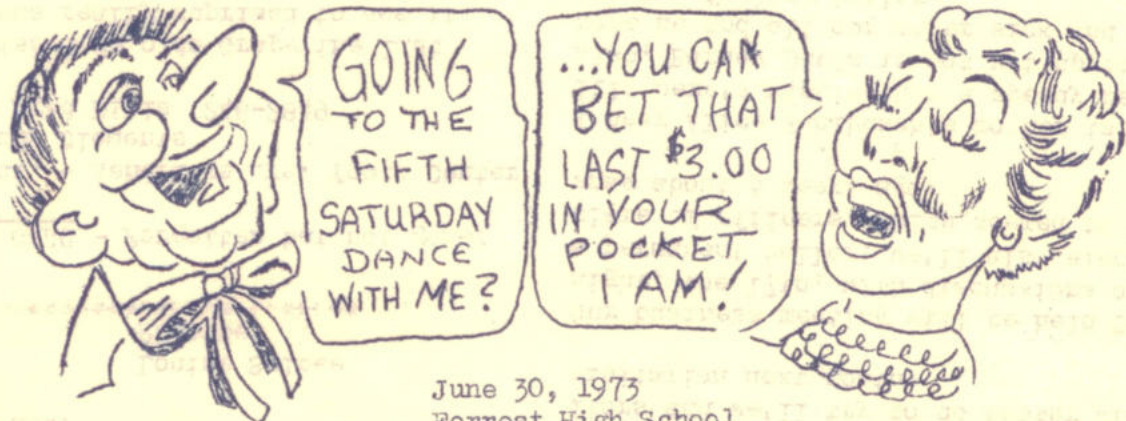 GOING
TO THE
FIFTH
SATURDAY
DANCE
WITH ME?
...YOU CAN
BET THAT
LAST $3.00
IN YOUR
POCKET,
I AM!
June 30, 1973
Forrest High School